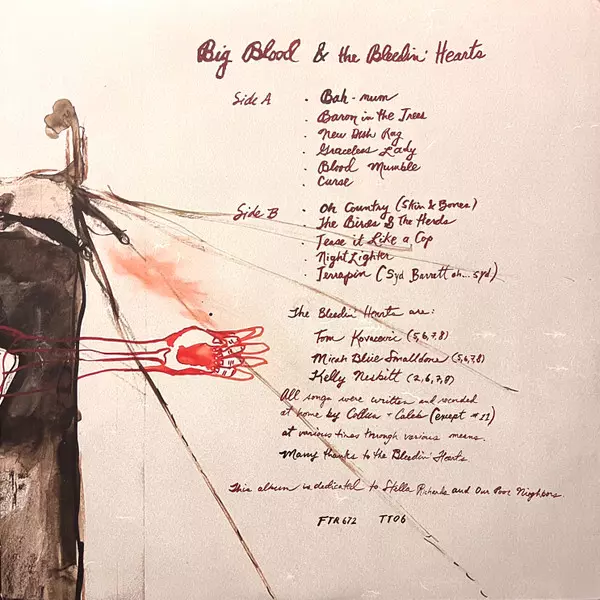 Big Blood & the Bleedin' Hearts
Side A
. Bah-mum
. Baron in the Trees
. New Dish Rag
. Graceless Lady
. Blood Mumble
. Curse
Side B
. Oh Country (Skin & Bones)
. The Birds & The Herds
. Tease it Like a Cop
. Night Lighter
. Terrapin (Syd Barrett oh... syd)
The Bleedin' Hearts are:
Tom Kovacevic (5,6,7,8)
Micah Blue Smaldone (5,6,7,8)
Kelly Nesbitt (2,6,7,8)
All songs were written and recorded
at home by Colleen + Caleb (except #11)
at various times through various means.
Many thanks to the Bleedin' Hearts
This album is dedicated to Stella Richards and Our Poor Nieghbors.
FTR672 TT06